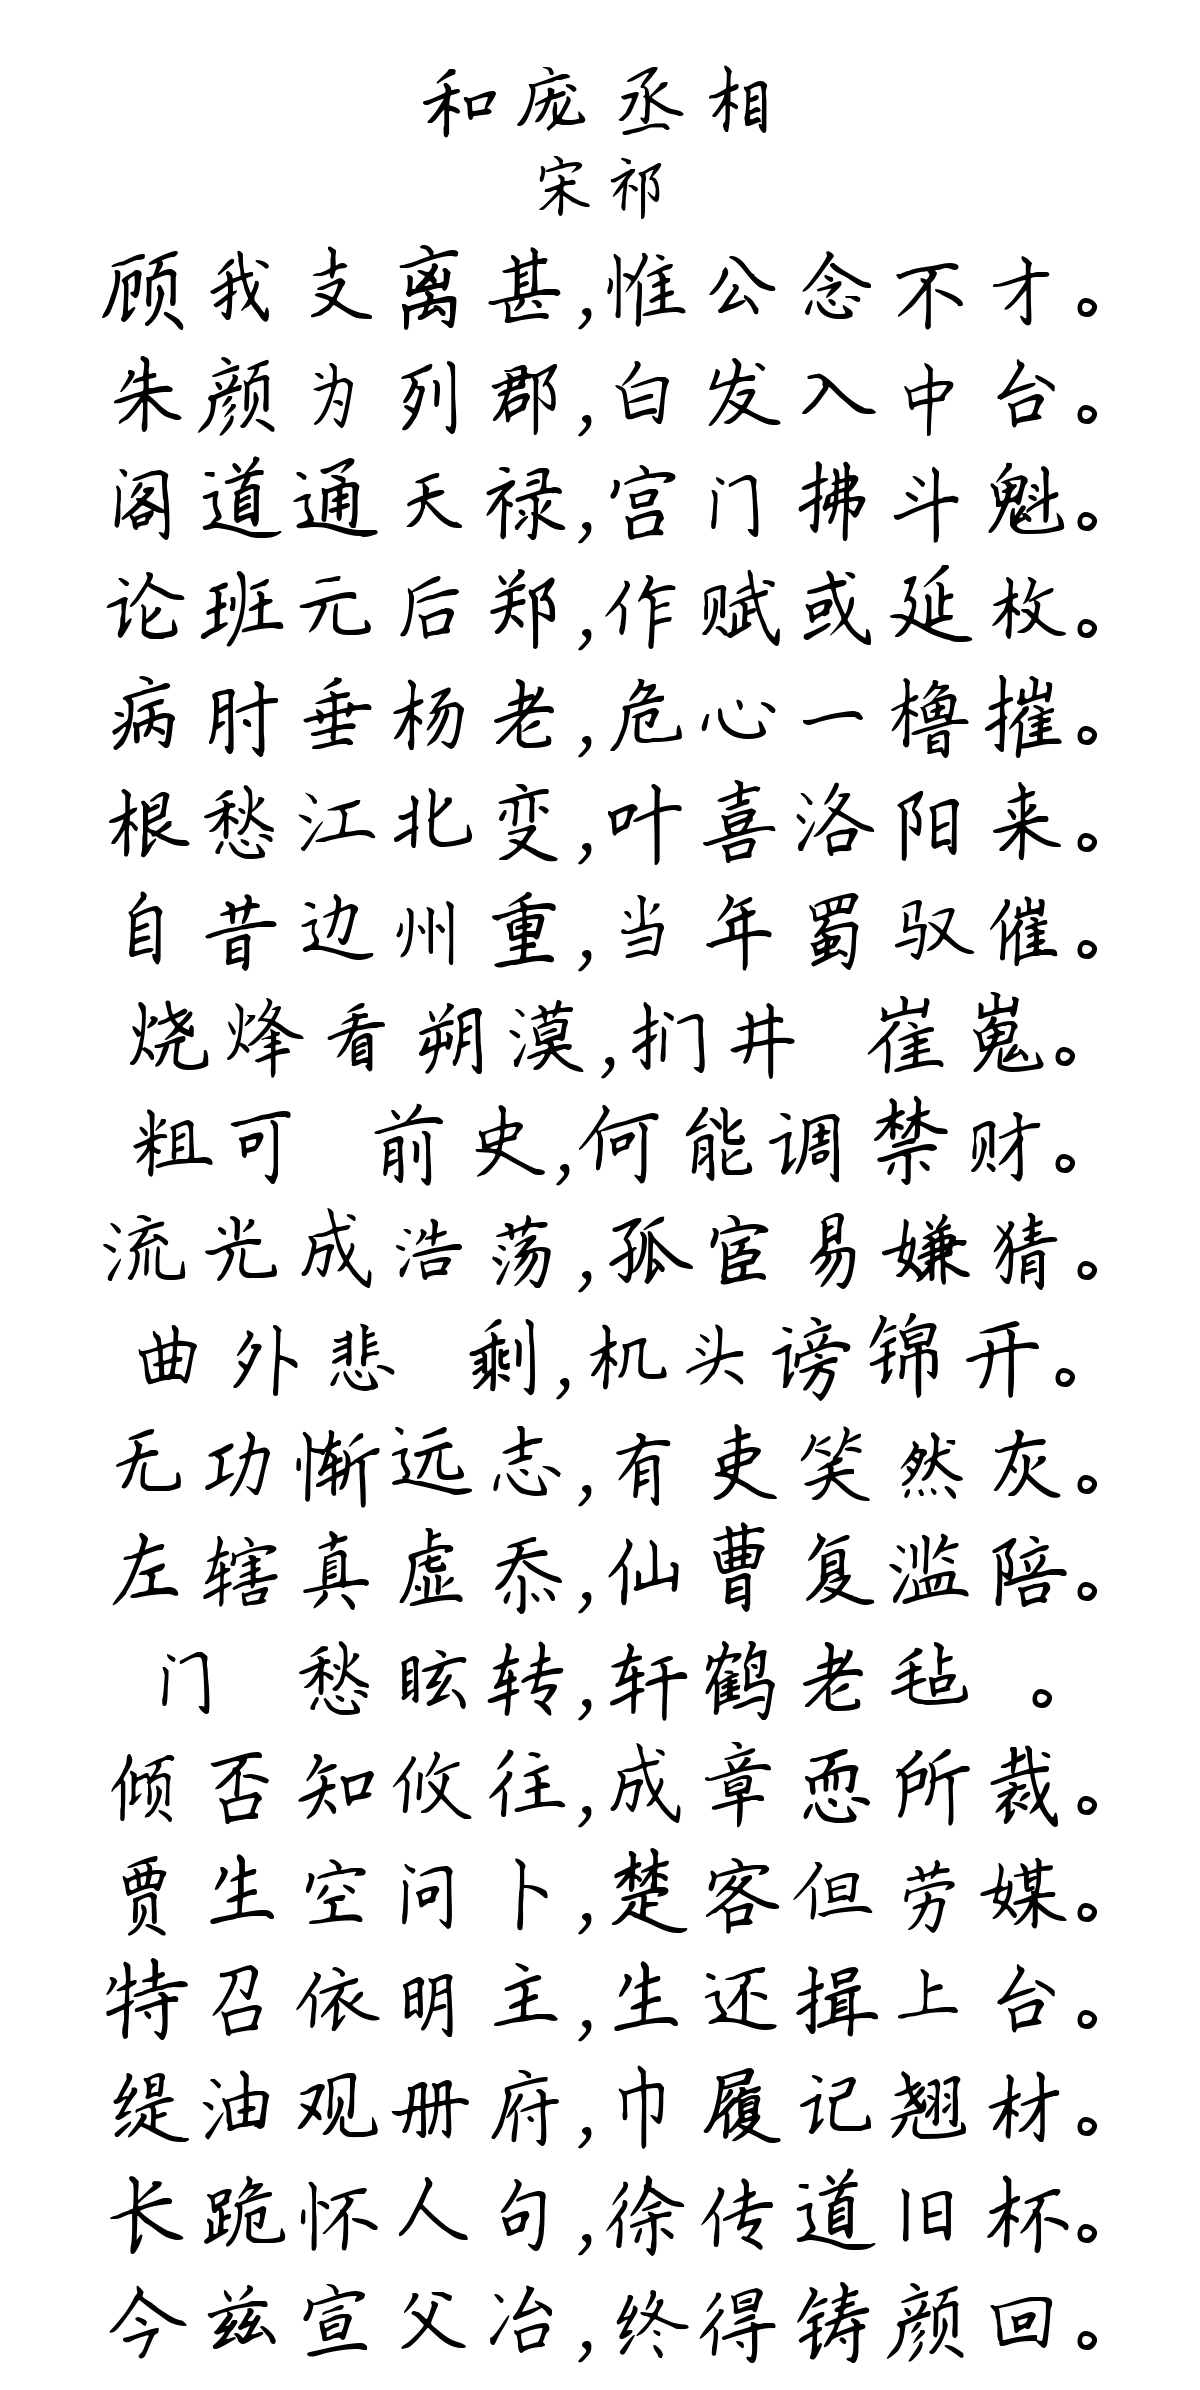 和庞丞相
宋祁
顾我支离甚,惟公念不才。
朱颜为列郡,白发入中台。
阁道通天禄,宫门拂斗魁。
论班元后郑,作赋或延枚。
病肘垂杨老,危心一橹摧。
根愁江北变,叶喜洛阳来。
自昔边州重,当年蜀驭催。
烧烽看朔漠,扪井 崔嵬。
粗可 前史,何能调禁财。
流光成浩荡,孤宦易嫌猜。
曲外悲 剩,机头谤锦开。
无功惭远志,有吏笑然灰。
左辖真虚忝,仙曹复滥陪。
门 愁眩转,轩鹤老毡 。
倾否知攸往,成章恧所裁。
贾生空问卜,楚客但劳媒。
特召依明主,生还揖上台。
缇油观册府,巾履记翘材。
长跪怀人句,徐传道旧杯。
今兹宣父冶,终得铸颜回。